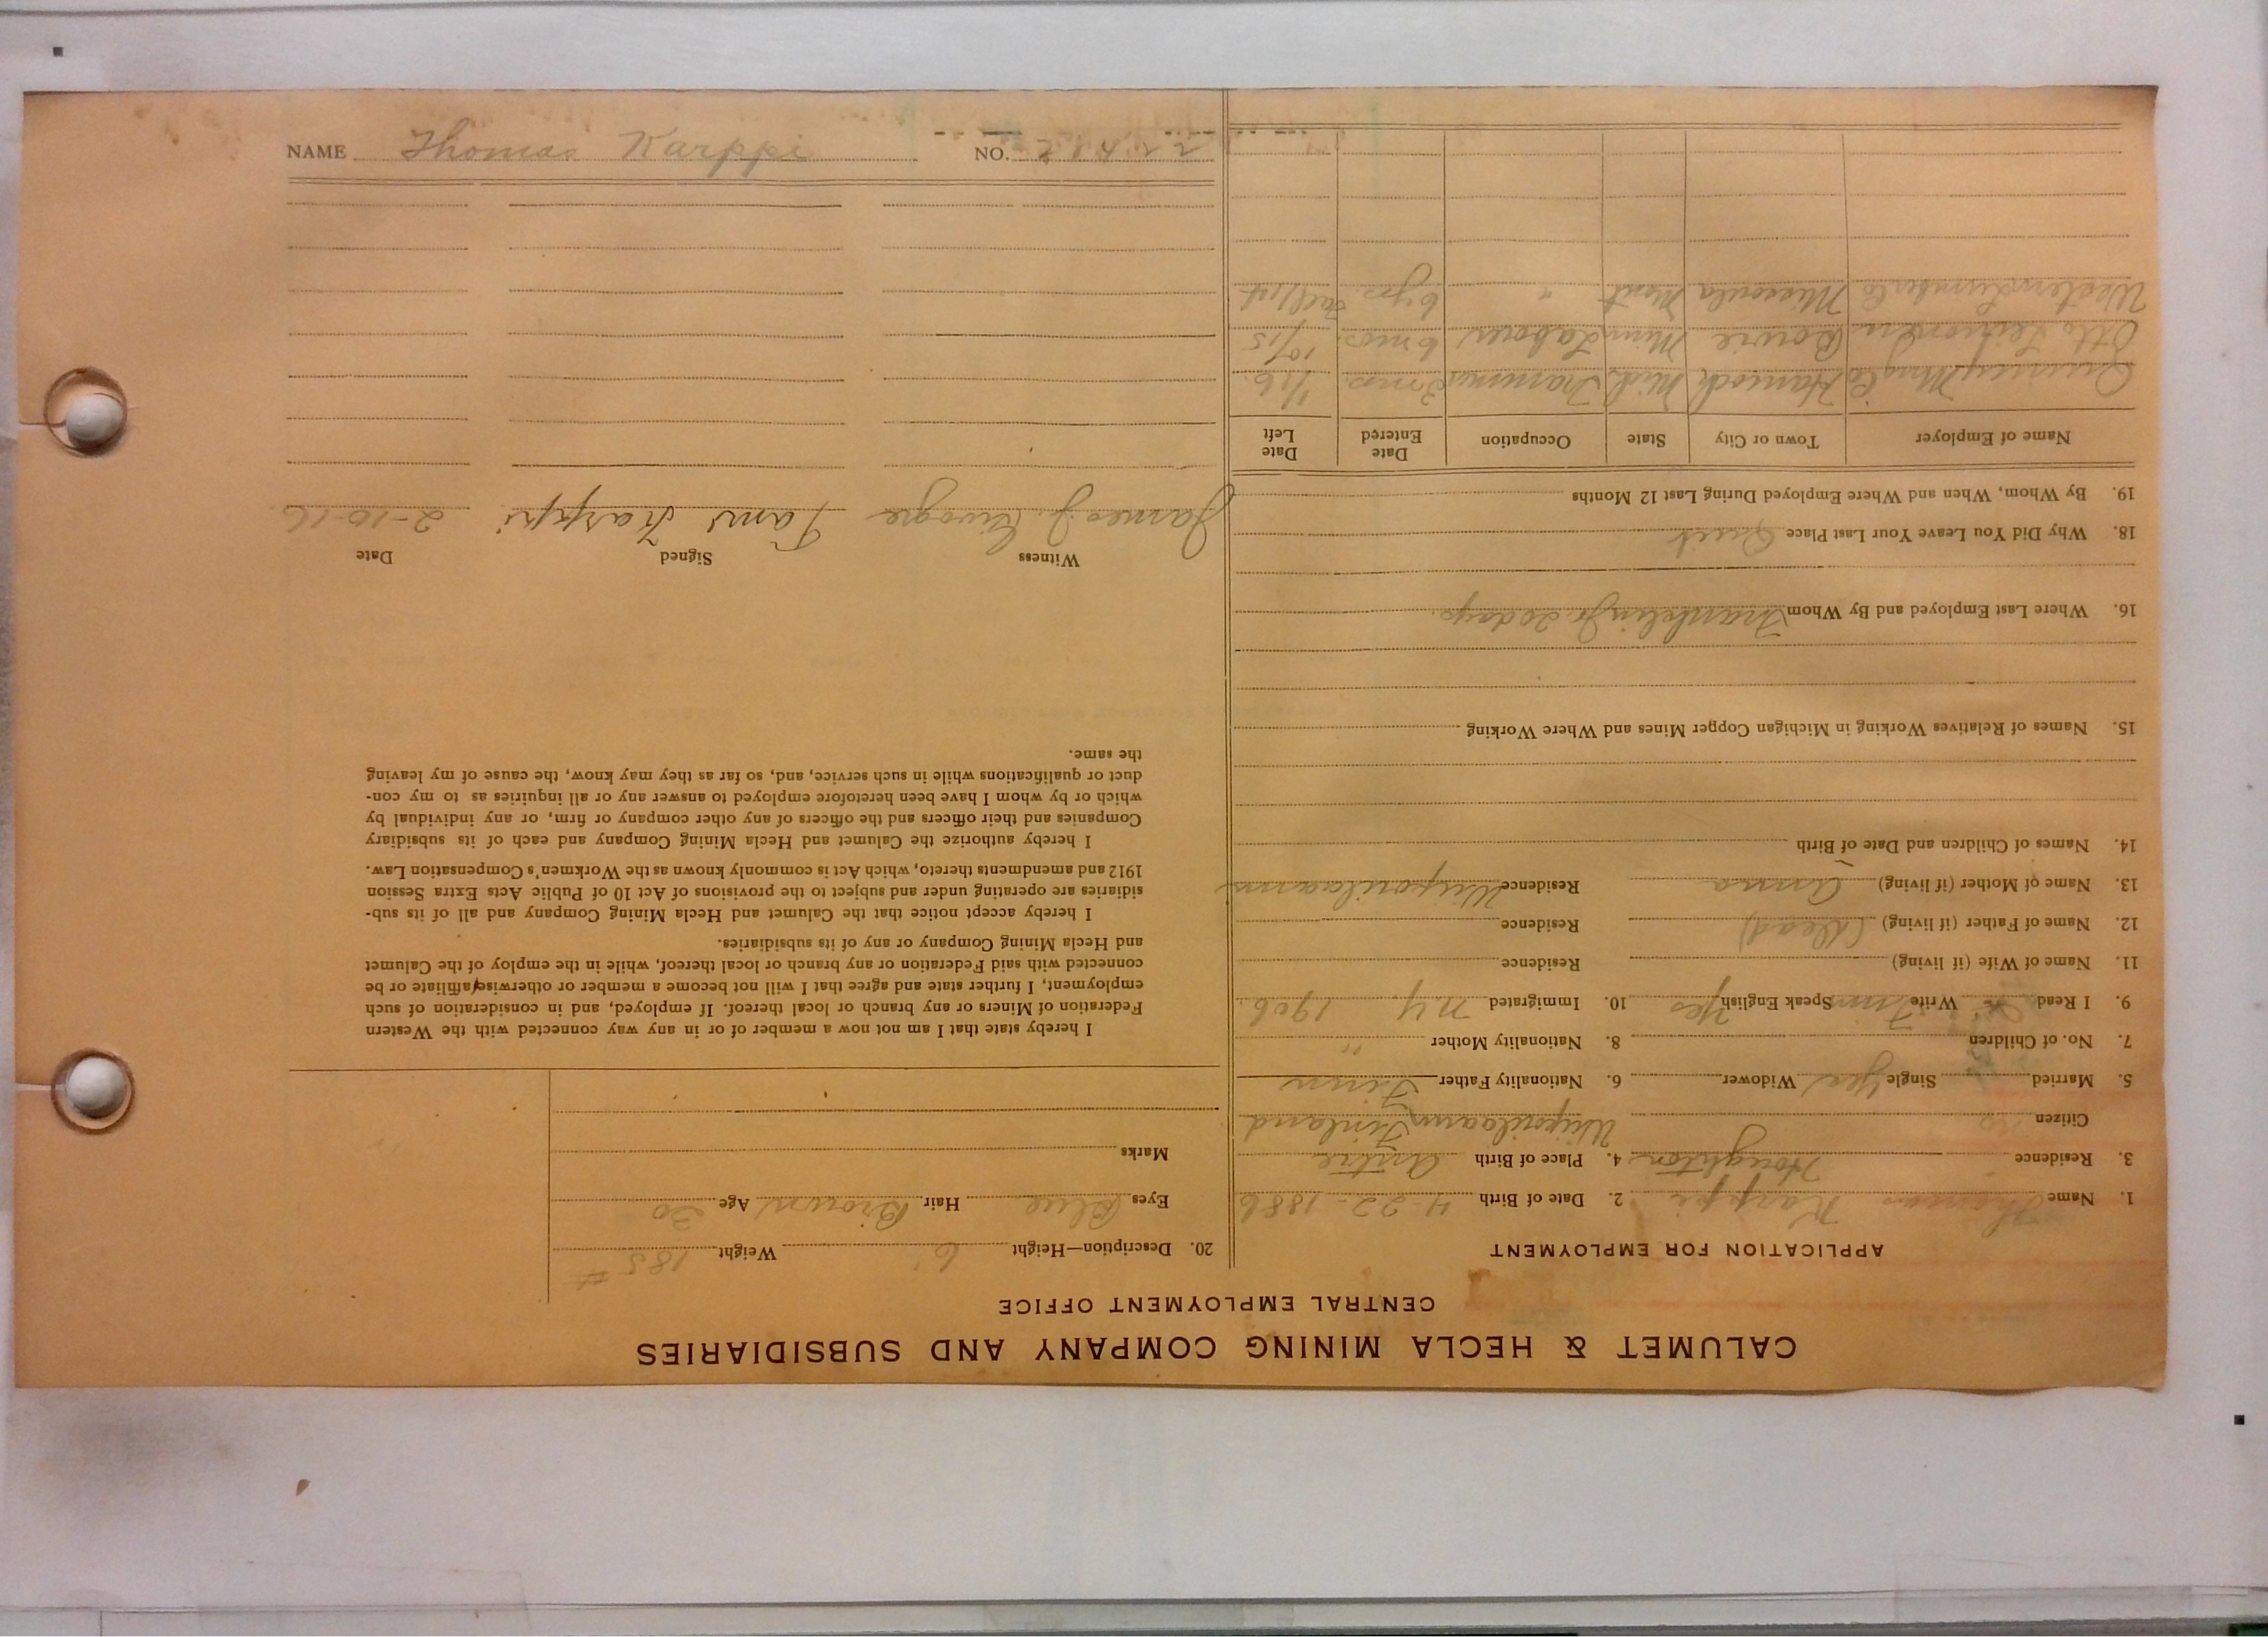 CALUMET & HECLA MINING COMPANY AND SUBSIDIARIES
CENTRAL EMPLOYMENT OFFICE
APPLICATION FOR EMPLOYMENT
1. Name Thomas Karppi 2. Date of Birth 4-22-1886
3. Residence Houghton 4. Place of Birth Antrie
Citizen no Wiipurilaann Finland
5. Married Single Yes Widower 6. Nationality Father Finn
7. No. of Children 8. Nationality Mother "
9. I Read Write Finn Speak English Yes 10. Immigrated N.Y. 1906
11. Name of Wife (if living) Residence
12. Name of Father (if living) (Dead) Residence
13. Name of Mother (if living) Anna Residence Wiipurilaann
14. Names of Children and Date of Birth
15. Names of Relatives Working in Michigan Copper Mines and Where Working
16. Where Last Employed and By Whom Franklin Jr. 20 days.
18. Why Did You Leave Your Last Place Quit
19. By Whom, When and Where Employed During Last 12 Months
Name of Employer Town or City State Occupation Date Entered Date Left
Quincy Mng Co Hancock Mich Trammer 3 mos. 1/16.
Otto Bowie Minn Laborer 6 mos. 10/15
Western Lumber Co Missoula Mont " 6 yrs.
20. Description—Height 6' Weight 185 #
Eyes Blue Hair Brown Age 30
Marks
I hereby state that I am not now a member of or in any way connected with the Western
Federation of Miners or any branch or local thereof. If employed, and in consideration of such
employment, I further state and agree that I will not become a member or otherwise affiliate or be
connected with said Federation or any branch or local thereof, while in the employ of the Calumet
and Hecla Mining Company or any of its subsidiaries.
I hereby accept notice that the Calumet and Hecla Mining Company and all of its sub-
sidiaries are operating under and subject to the provisions of Act 10 of Public Acts Extra Session
1912 and amendments thereto, which Act is commonly known as the Workmen's Compensation Law.
I hereby authorize the Calumet and Hecla Mining Company and each of its subsidiary
Companies and their officers and the officers of any other company or firm, or any individual by
which or by whom I have been heretofore employed to answer any or all inquiries as to my con-
duct or qualifications while in such service, and, so far as they may know, the cause of my leaving
the same.
Witness Signed Date
James J. Tami Karppi 2-10-16.
NAME Thomas Karppi NO.